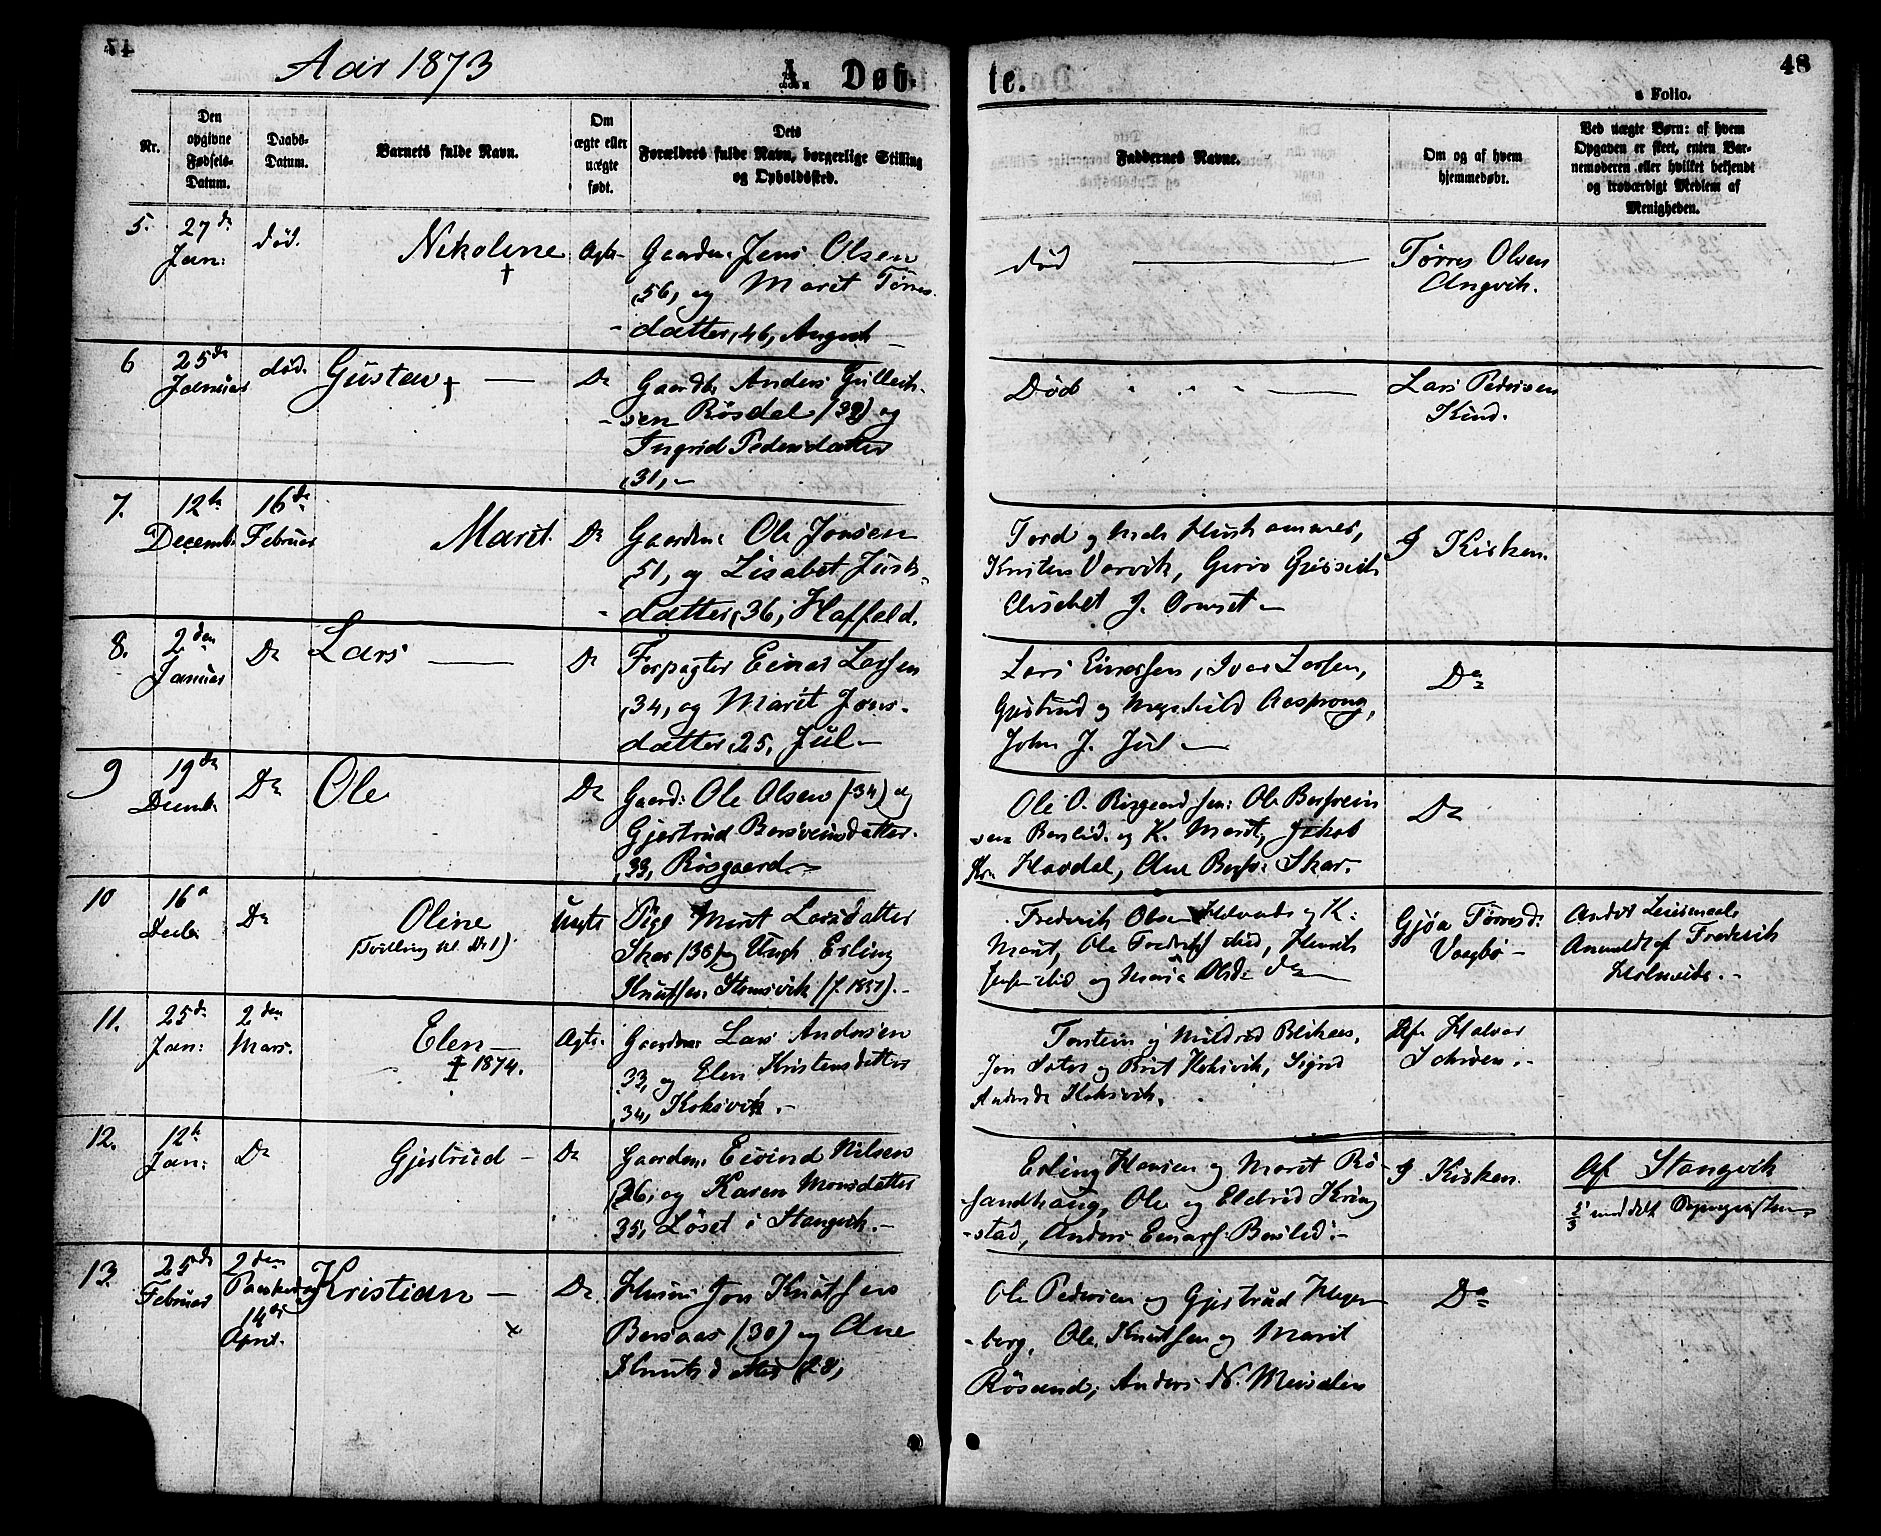 Aar 1873
A. Døb-
te.
48
a Folio.
Nr.
Den
opgivne
Fødsels-
Datum.
Daabs-
Datum.
Barnets fulde Navn.
Om
ægte eller
uægte
født.
Dets
Forældres fulde Navn, borgerlige Stilling
og Opholdssted.
Faddernes Navne.
Om og af hvem
hjemmedøbt.
Ved uægte Børn: af hvem
Opgaven er skeet, enten Bar-
nemoderen eller hvilket bekjendt
og troværdigt Medlem af
Menigheden.
5.
27de
Jan:
død.
Nikoline
†
Ægte
Gaardm: Jens Olsen
(56) og Marit Tørres-
datter (46) Angvik
død
Tørres Olsen
Angvik.
6
25de
Januar
død.
Gustav †
Do
Gaardb Anders Gulleik-
sen Røsdal (39) og
Ingrid Pedersdatter
(31)
Død
Lars Pedersen
Kind.
7.
12te
Decemb.
16de
Februar
Marit.
Do
Gaardm: Ole Jonsen
(51) og Lisabet Just-
datter (36) Haffeld.
Tord og Hustru
Kristen Vorvik,
Elisebet J. Ornset
I Kirken.
8.
2den
Januar
Do
Lars
Do
Forpagter Einar Larsen
(34) og Marit Jons-
datter (25) Jul
Lars Einarsen, Ivar Larsen,
og Aasprong,
John J. Jul
Do
9
19de
Decemb
Do
Ole
Do
Gaard: Ole Olsen (34) og
Gjertrud Bersveinsdatter
(33) Røsgaard
Ole O. Røsgaard Ole Bersvein
sen Berslid og K. Marit, Jakob
Havdal, Ane Skar.
Do
10
16de
Decb
Do
Oline
(Tvilling til No 1).
Uægte
Pige Marit Larsdatter
Skar (36) og Ungk Erling
Knutsen Stomsvik (f. 1851).
Frederik Olsen og K:
Marit, Ole lid, Henrik
lid og Maria Olsd.
Gjøa Tørresd.
Vaagbø
Anmeldt af Frederik
11.
25de
Jan:
2den
Mars.
Elen
† 1874.
Ægte.
Gaardm: Lars Andersen
(33) og Elen Kristensdatter
(34) Koksvik.
Torstein og Mildrid Blikaas,
Jon og Brit Koksvik, Sigrid
Andersd. Koksvik.
Af Halvor
12.
12te
Jan:
Do
Gjertrud
Do
Gaardm: Eivind Nilsen
(26) og Karen Monsdatter
(35) Løset i Stangvik.
Erling Hansen og Marit Rø-
sandhaug, Ole og Eldrid Kring
-stad, Anders Einars. Berslid.
I Kirken.
Af Stangvik
2/3 meddelt
13.
25de
Februar
2den
Paaskedag
14de
April.
Kristian
×
Do.
Husm: Jon Knutsen
Bersaas (30) og Ane
Knutsdatter (28)
Ole Pedersen og Gjertrud Hegge
-berg, Ole Knutsen og Marit
Røsand, Anders N. Meisalen
Do